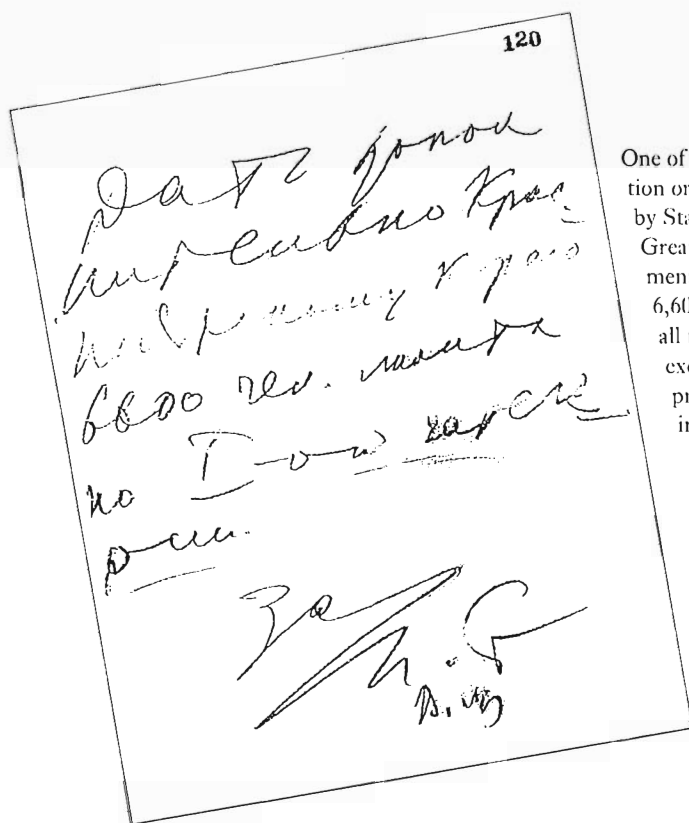 120
Дать допол
нительно Крас-
ноярскому краю
6600 чел. лимита
по I-ой
рии.
За
One of
tion or
by Sta
Grea
men
6,60
all
exc
pr